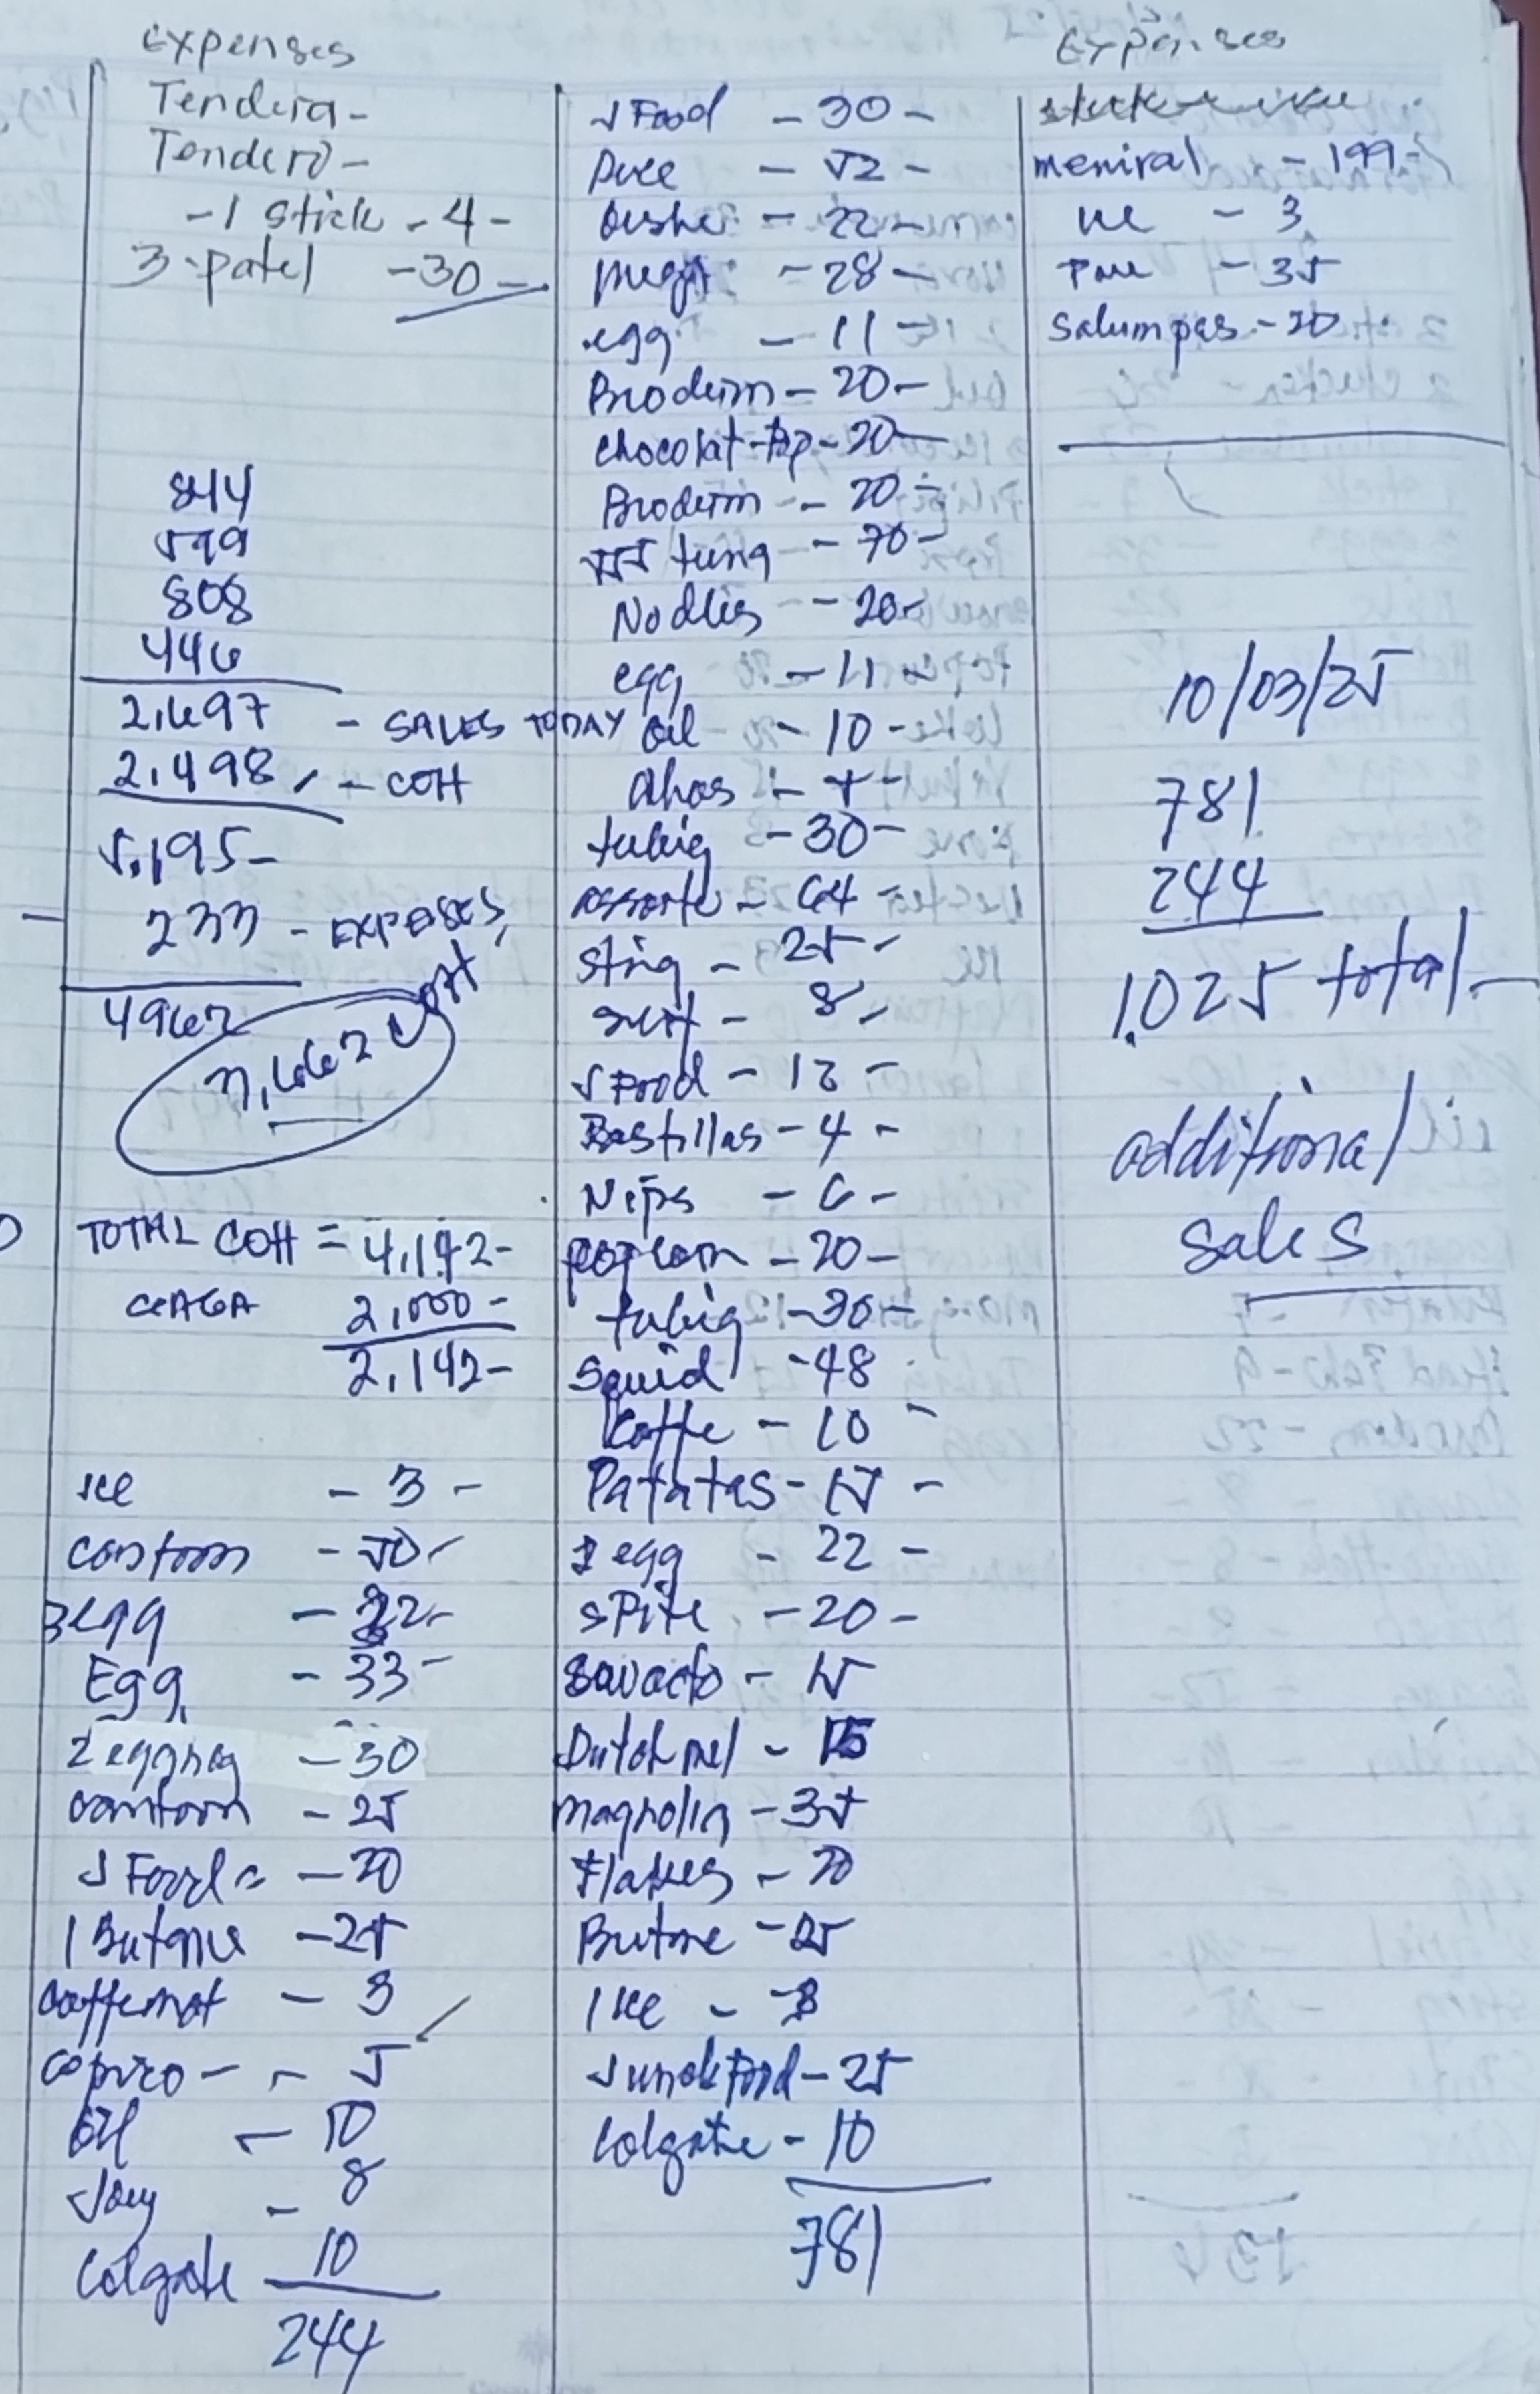 Expenses
Tendera -
Tendero -
- 1 stick - 4 -
3 patel - 30 -
844
599
808
446
2,697 - SALES TODAY
2,498 - COH
5,195 -
- 233 - EXPENSES
4962
COH
TOTAL COH = 4,142 -
GAGA 2,000 -
2,142 -
Ice - 3 -
cantoon - 50 -
3 egg -
Egg - 33 -
2 eggnog - 30
cantoon - 25
J Food - 20
1 Butane - 25
coffemat - 3
copico - - 5
Oil - 10
Joy - 8
Colgate 10
244
J Food - 30 -
- 52 -
- 22 -
- 28 -
egg - 11 -
Bioderm - 20 -
chocolat - 20
Bioderm - 20 -
555 tuna - 70 -
Nodles - 20 -
egg - 11 -
Oil - 10 -
Ahos - 7 -
tubig - 30 -
assorte - 64 -
Sting - 25 -
surf - 8 -
J Food - 12 -
Bastillas - 4 -
Nips - 6 -
popcorn - 20 -
tubig - 30 -
Squid - 48
Koffe - 10 -
Patatas - 15 -
2 egg - 22 -
sPite - 20 -
- 15
Dutchmel - 15
magnolia - 35
Flakes - 20
Butane - 25
1 Ice - 3
Junckfood - 25
Colgate - 10
781
Expenses
meniral - 199 -
Ice - 3
- 35
Salumpas - 20
10/03/25
781
244
1,025 total -
additional
sales